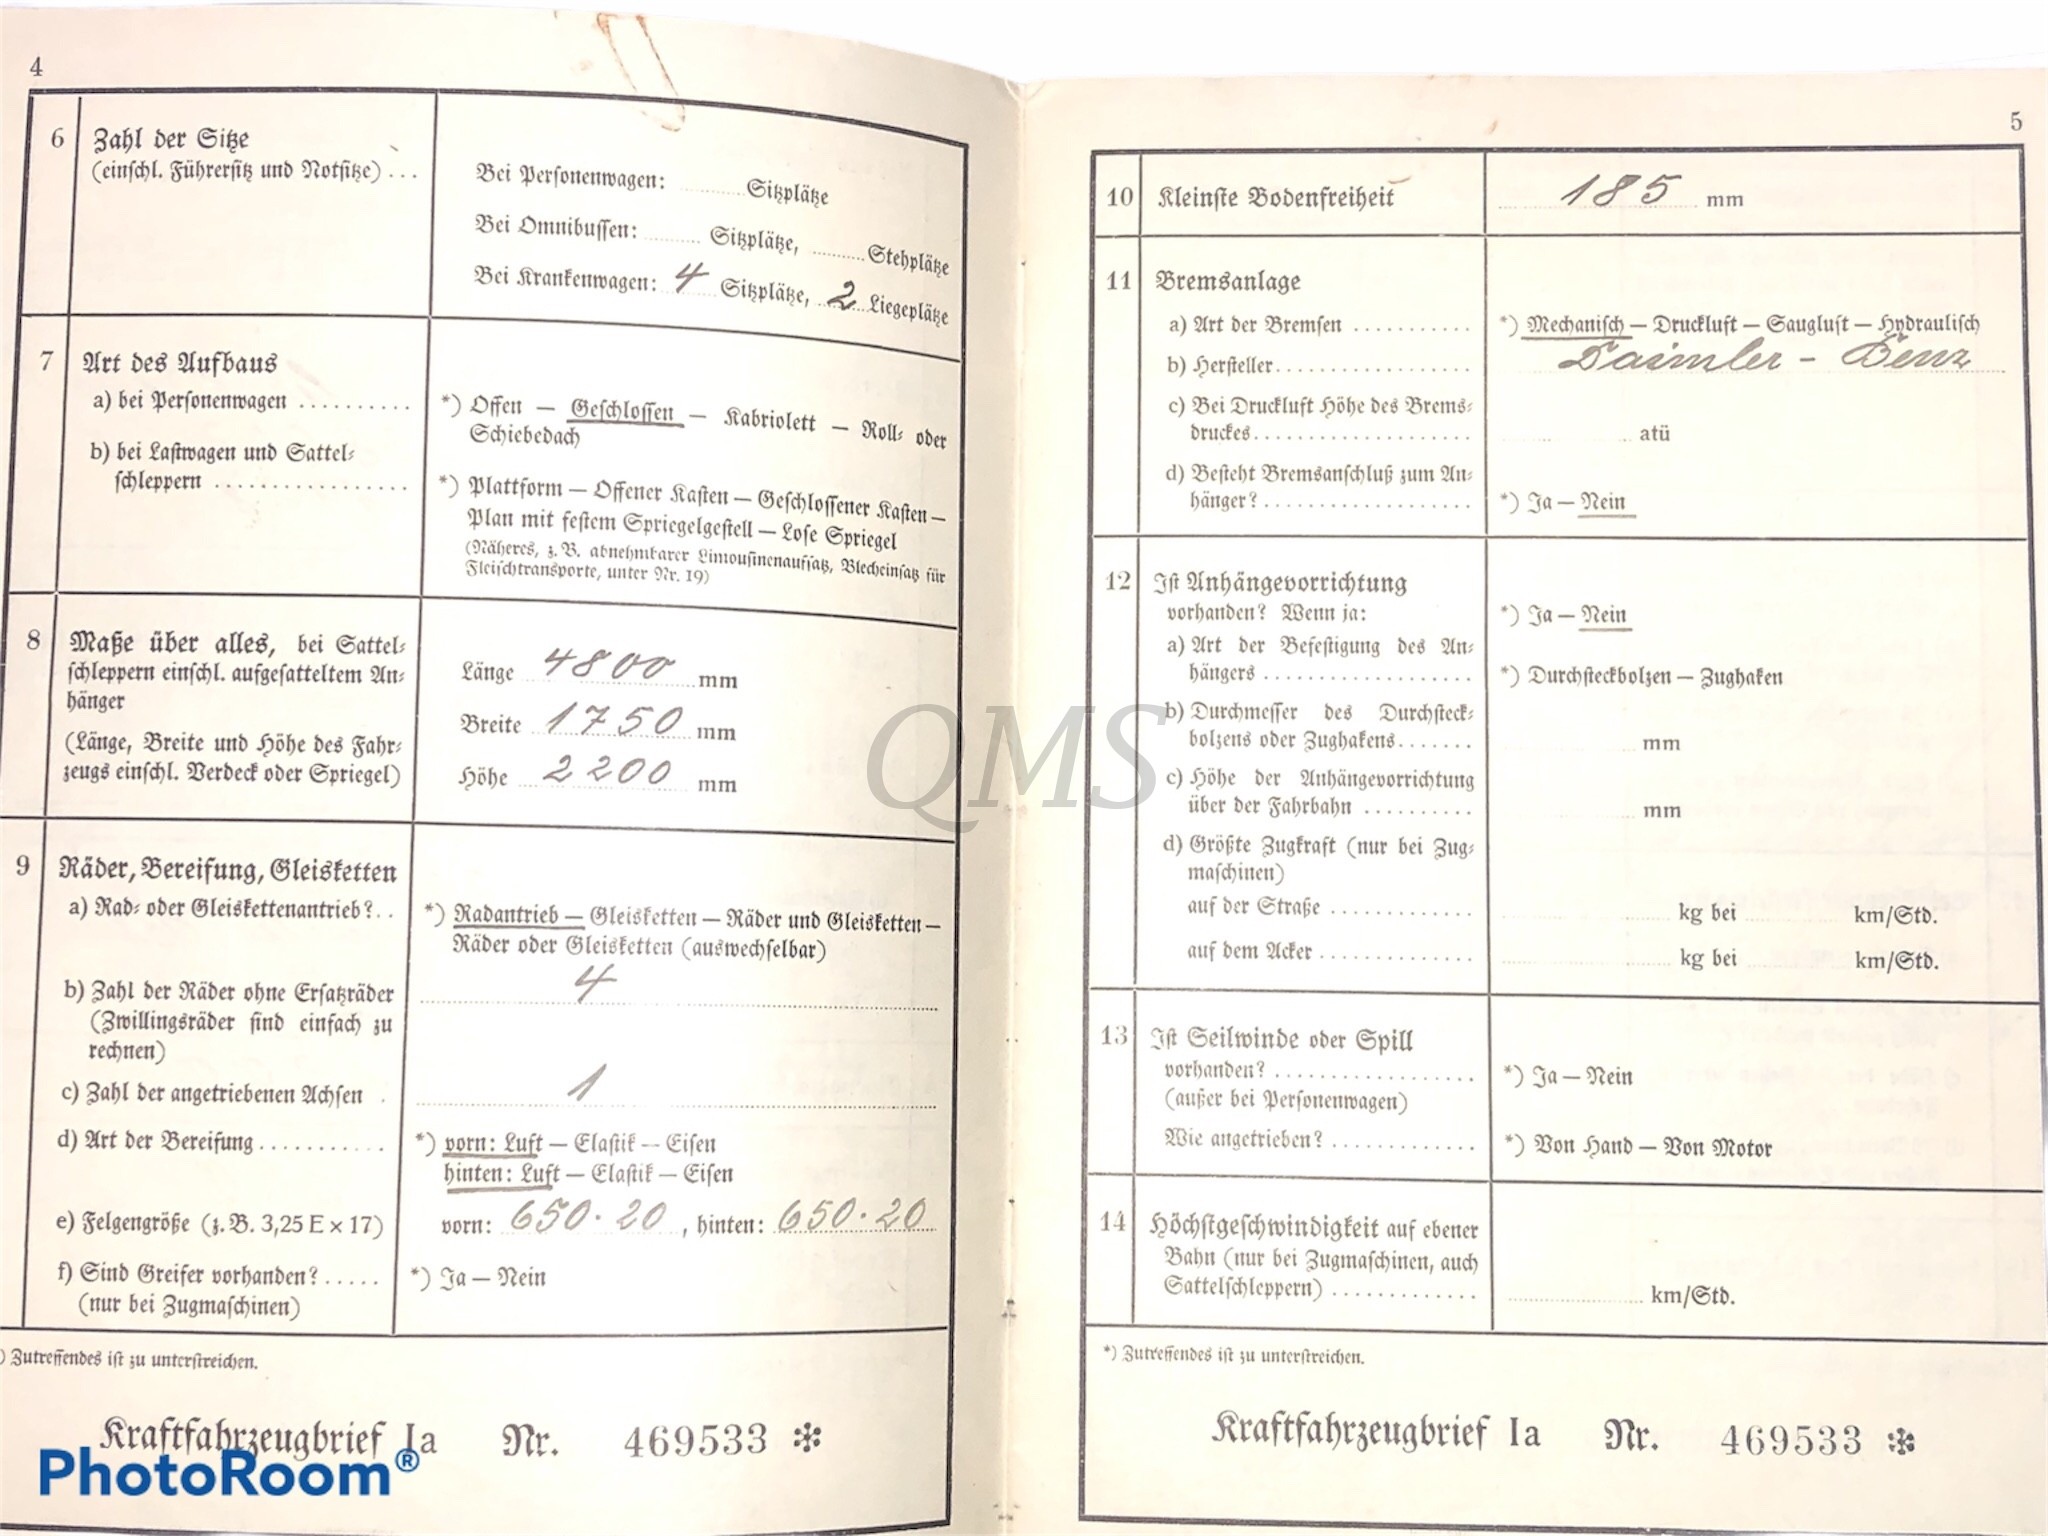 4
6 Zahl der Sitze
(einschl. Führersitz und Notsitze) . . .
Bei Personenwagen: ........ Sitzplätze
Bei Omnibussen: ........ Sitzplätze, ........ Stehplätze
Bei Krankenwagen: 4 Sitzplätze, 2 Liegeplätze
7 Art des Aufbaus
a) bei Personenwagen . . . . . . . . . .
*) Offen — Geschlossen — Kabriolett — Roll- oder
Schiebedach
b) bei Lastwagen und Sattel-
schleppern . . . . . . . . . . . . . . . . .
*) Plattform — Offener Kasten — Geschlossener Kasten —
Plan mit festem Spriegelgestell — Lose Spriegel
(Näheres, z. B. abnehmbarer Limousinenaufsatz, Blecheinsatz für
Fleischtransporte, unter Nr. 19)
8 Maße über alles, bei Sattel-
schleppern einschl. aufgesatteltem An-
hänger
(Länge, Breite und Höhe des Fahr-
zeugs einschl. Verdeck oder Spriegel)
Länge 4800 mm
Breite 1750 mm
Höhe 2200 mm
9 Räder, Bereifung, Gleisketten
a) Rad- oder Gleiskettenantrieb? . .
*) Radantrieb — Gleisketten — Räder und Gleisketten —
Räder oder Gleisketten (auswechselbar)
b) Zahl der Räder ohne Ersatzräder
(Zwillingsräder sind einfach zu
rechnen)
4
c) Zahl der angetriebenen Achsen .
1
d) Art der Bereifung . . . . . . . . . . .
*) vorn: Luft — Elastik — Eisen
hinten: Luft — Elastik — Eisen
e) Felgengröße (z. B. 3,25 E × 17)
vorn: 650·20, hinten: 650·20
f) Sind Greifer vorhanden? . . . . .
(nur bei Zugmaschinen)
*) Ja — Nein
) Zutreffendes ist zu unterstreichen.
Kraftfahrzeugbrief Ia Nr. 469533 *
PhotoRoom®
QMS
5
10 Kleinste Bodenfreiheit
185 mm
11 Bremsanlage
a) Art der Bremsen . . . . . . . . . . .
*) Mechanisch — Druckluft — Saugluft — Hydraulisch
b) Hersteller . . . . . . . . . . . . . . . . . .
Daimler - Benz
c) Bei Druckluft Höhe des Brems-
druckes . . . . . . . . . . . . . . . . . . . .
........ atü
d) Besteht Bremsanschluß zum An-
hänger? . . . . . . . . . . . . . . . . . . .
*) Ja — Nein
12 Ist Anhängevorrichtung
vorhanden? Wenn ja:
*) Ja — Nein
a) Art der Befestigung des An-
hängers . . . . . . . . . . . . . . . . . . .
*) Durchsteckbolzen — Zughaken
b) Durchmesser des Durchsteck-
bolzens oder Zughakens . . . . . . .
........ mm
c) Höhe der Anhängevorrichtung
über der Fahrbahn . . . . . . . . . .
........ mm
d) Größte Zugkraft (nur bei Zug-
maschinen)
auf der Straße . . . . . . . . . . . . .
........ kg bei ........ km/Std.
auf dem Acker . . . . . . . . . . . . . .
........ kg bei ........ km/Std.
13 Ist Seilwinde oder Spill
vorhanden? . . . . . . . . . . . . . . . . . .
(außer bei Personenwagen)
*) Ja — Nein
Wie angetrieben? . . . . . . . . . . . . .
*) Von Hand — Von Motor
14 Höchstgeschwindigkeit auf ebener
Bahn (nur bei Zugmaschinen, auch
Sattelschleppern) . . . . . . . . . . . . .
........ km/Std.
*) Zutreffendes ist zu unterstreichen.
Kraftfahrzeugbrief Ia Nr. 469533 *